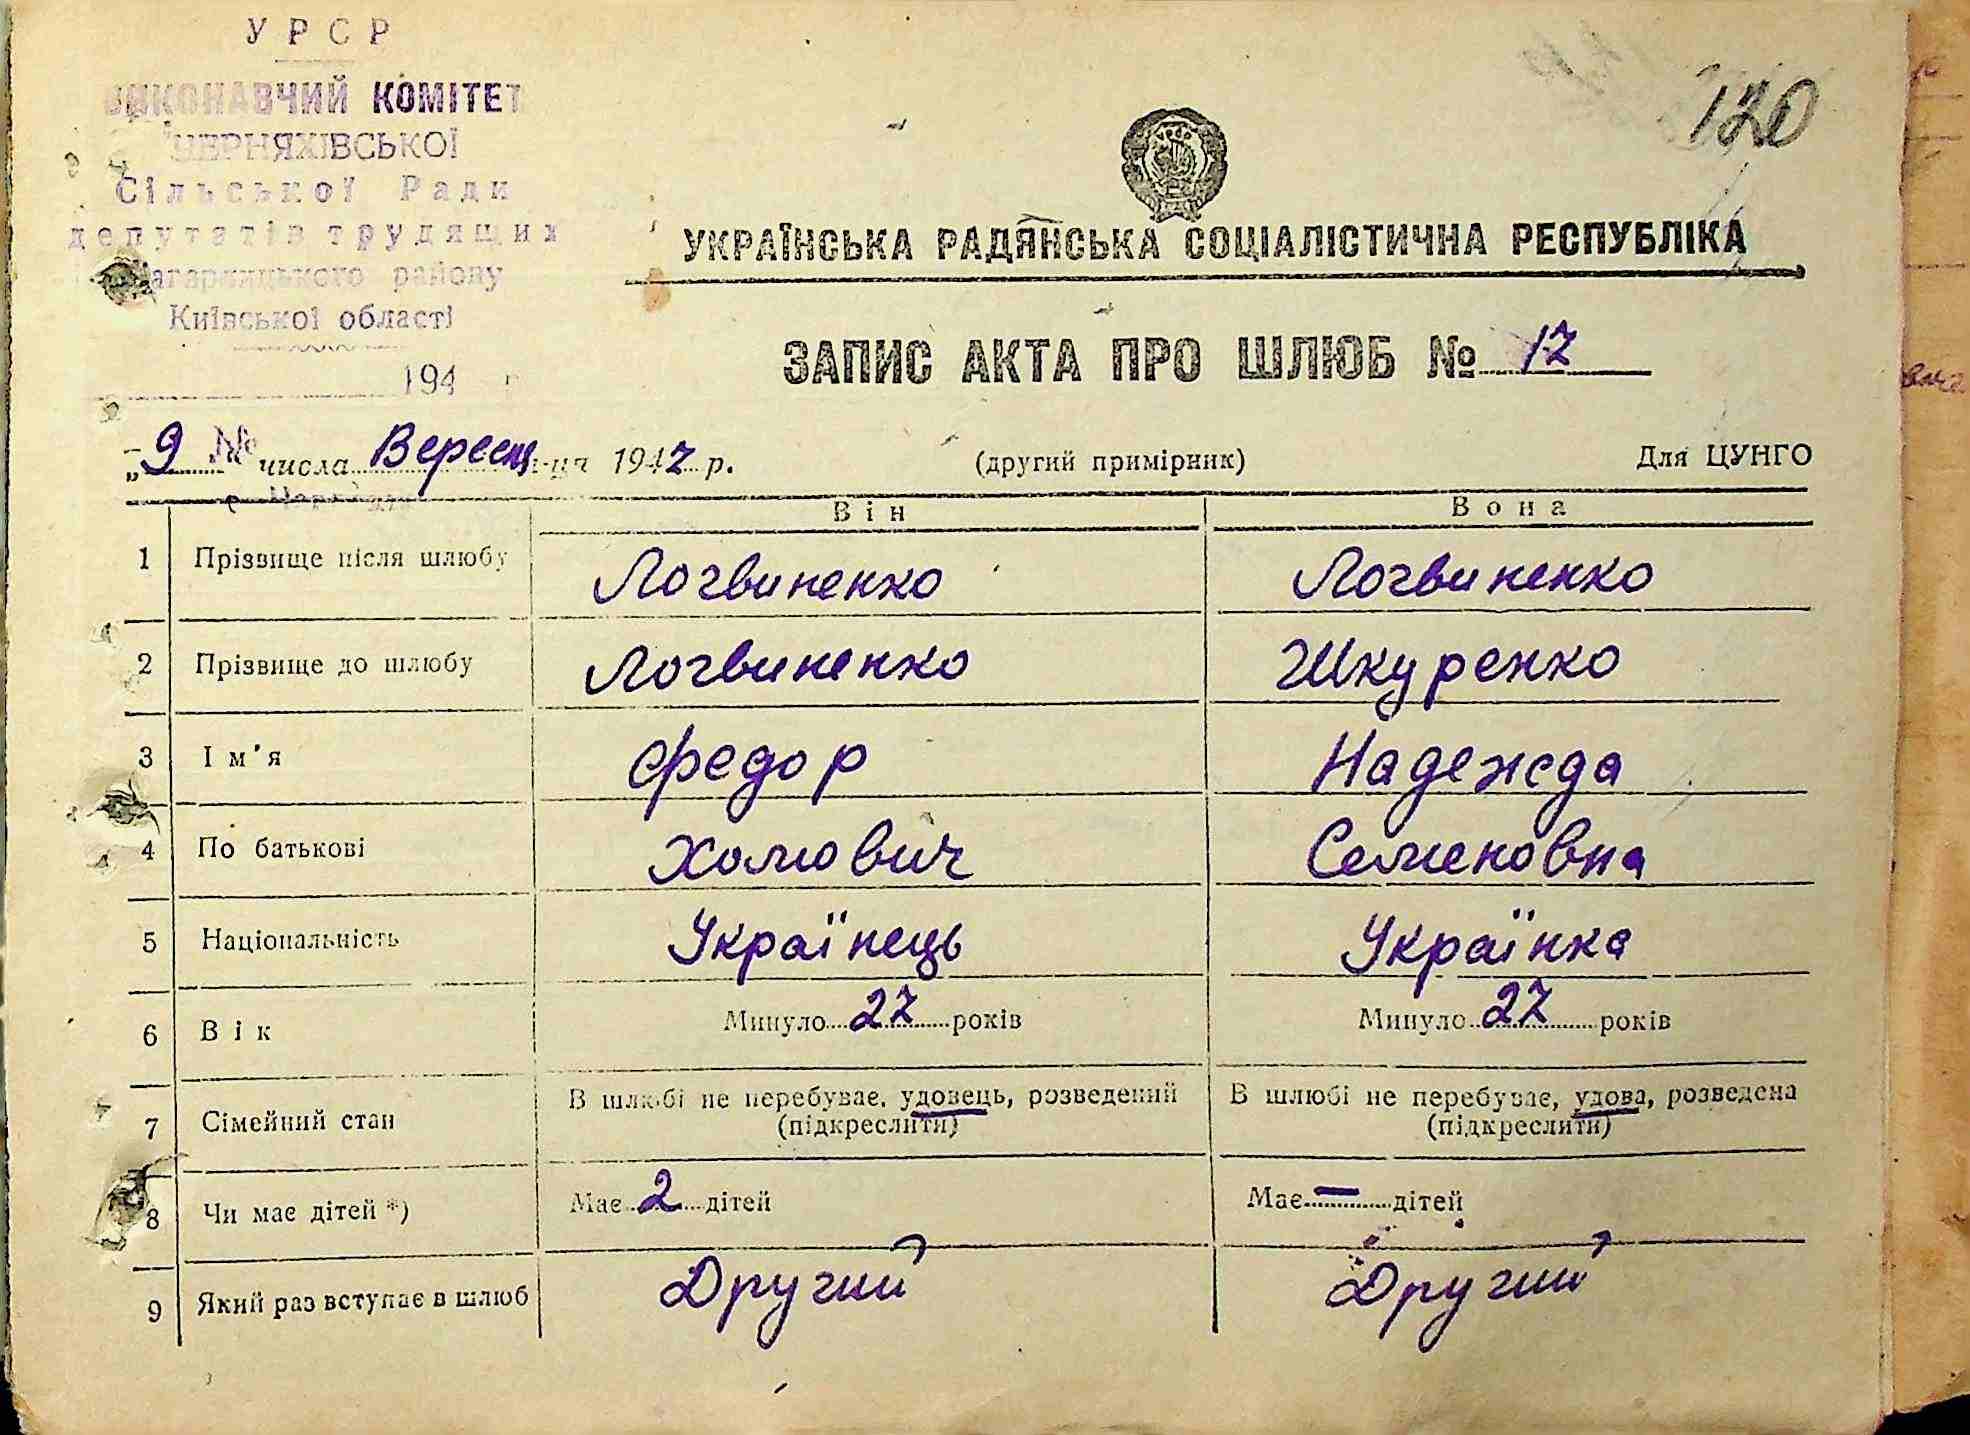 УРСР
ВИКОНАВЧИЙ КОМІТЕТ
ЧЕРНЯХІВСЬКОЇ
Сільської Ради
депутатів трудящих
Кагарлицького району
Київської області
194 г
120
УКРАЇНСЬКА РАДЯНСЬКА СОЦІАЛІСТИЧНА РЕСПУБЛІКА
ЗАПИС АКТА ПРО ШЛЮБ № 17
„9 № числа Вересня 1947 р. (другий примірник) Для ЦУНГО
Він Вона
1 Прізвище після шлюбу Логвиненко Логвиненко
2 Прізвище до шлюбу Логвиненко Шкуренко
3 Ім'я Федор Надежда
4 По батькові Хомович Семеновна
5 Національність Українець Українка
6 Вік Минуло 27 років Минуло 27 років
7 Сімейний стан В шлюбі не перебуває, удовець, розведений (підкреслити) В шлюбі не перебуває, удова, розведена (підкреслити)
8 Чи має дітей *) Має 2 дітей Має — дітей
9 Який раз вступає в шлюб Другий Другий